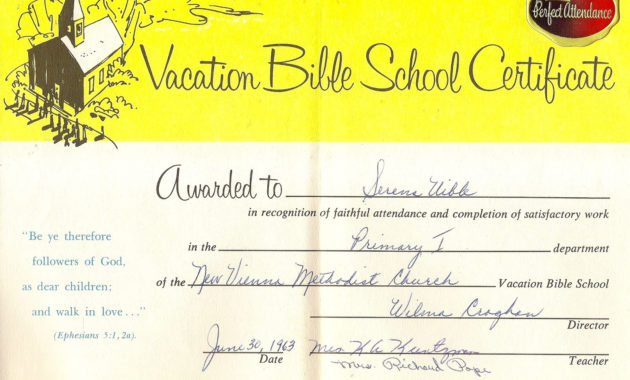 Perfect Attendance
Vacation Bible School Certificate
Awarded to Serena Uible
in recognition of faithful attendance and completion of satisfactory work
in the Primary I department
of the New Vienna Methodist Church Vacation Bible School
"Be ye therefore
followers of God,
as dear children;
and walk in love..."
(Ephesians 5:1, 2a).
Wilma Croghan
Director
June 30, 1963 Mrs. K A Kuntzman
Date Teacher
Mrs. Richard Pope